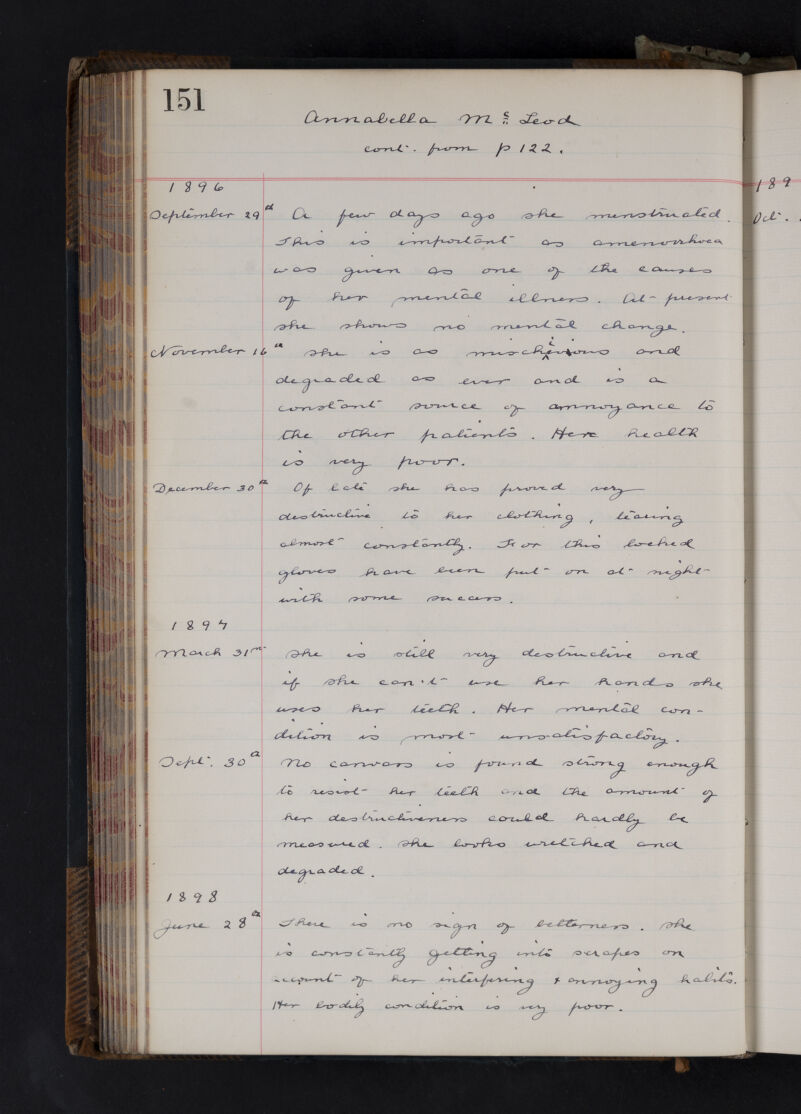 151
Annabella Mc Leod
cont. from p 122.
1896
189
September 29th A few days ago she menstruated.
Oct.
This is important as amenorrhoea
was given as one of the causes
of her mental illness. At present
she shows no mental change.
November 16th She is as mischievious and
degraded as ever and is a
constant source of annoyance to
the other patients. Here health
is very poor.
December 30th Of late she has proved very
destructive to her clothing, tearing
almost constantly. For this locked
gloves have been put on at night
with some success.
1897
March 31st She is still very destructive and
if she can't use her hands she
uses her teeth. Her mental con-
dition is most unsatisfactory.
Sept. 30th No canvas is found strong enough
to resist her teeth and the amount of
her destructiveness could hardly be
measured. She looks wretched and
degraded.
1898
June 28th There is no sign of betterness. She
is constantly getting into scrapes on
account of her interfering & annoying habits.
Her bodily condition is very poor.